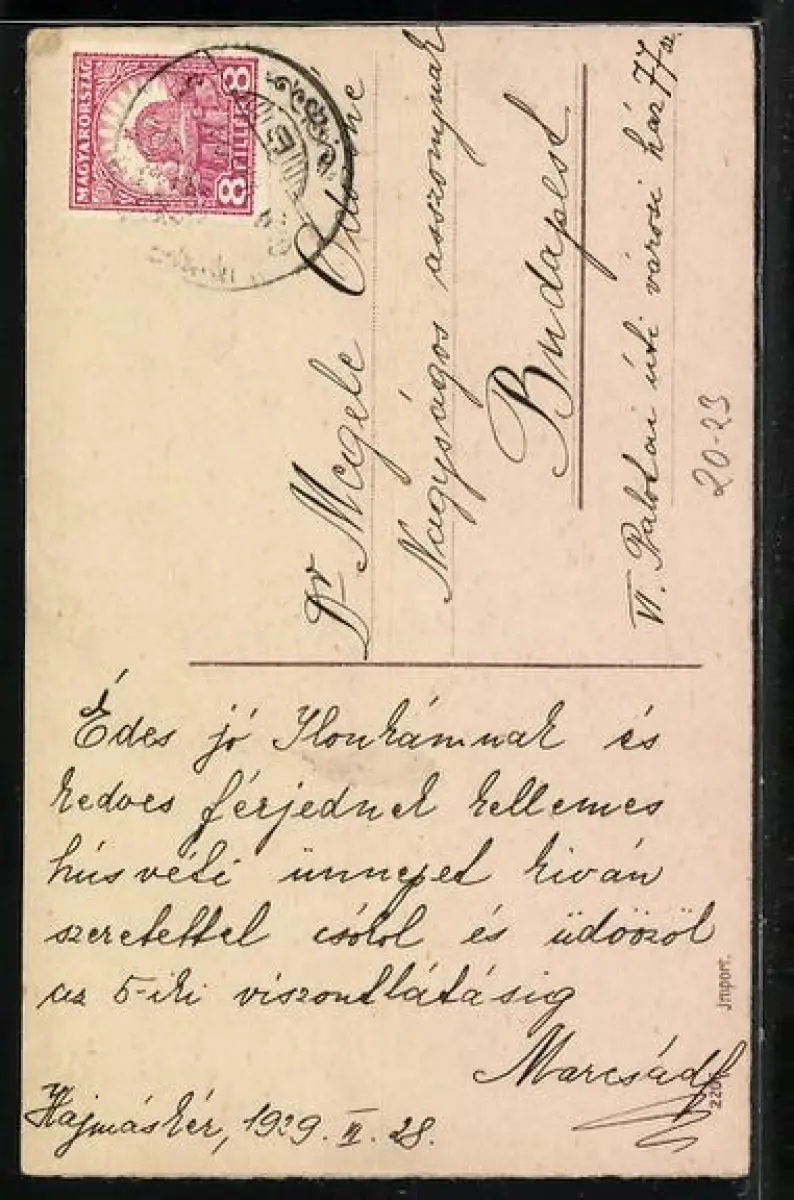 MAGYARORSZÁG
8 FILLÉR 8
Dr Magele Ödönné
Nagyságos asszonynak
Budapest
VI. Palotai úti városi ház 77 sz.
20-23
Édes jó Ilonkámnak és
kedves férjednek kellemes
húsvéti ünnepet kiván
szeretettel csókol és üdvözöl
az 5-iki viszontlátásig
Marcsád
Hajmáskér, 1929. II. 28.
Import.